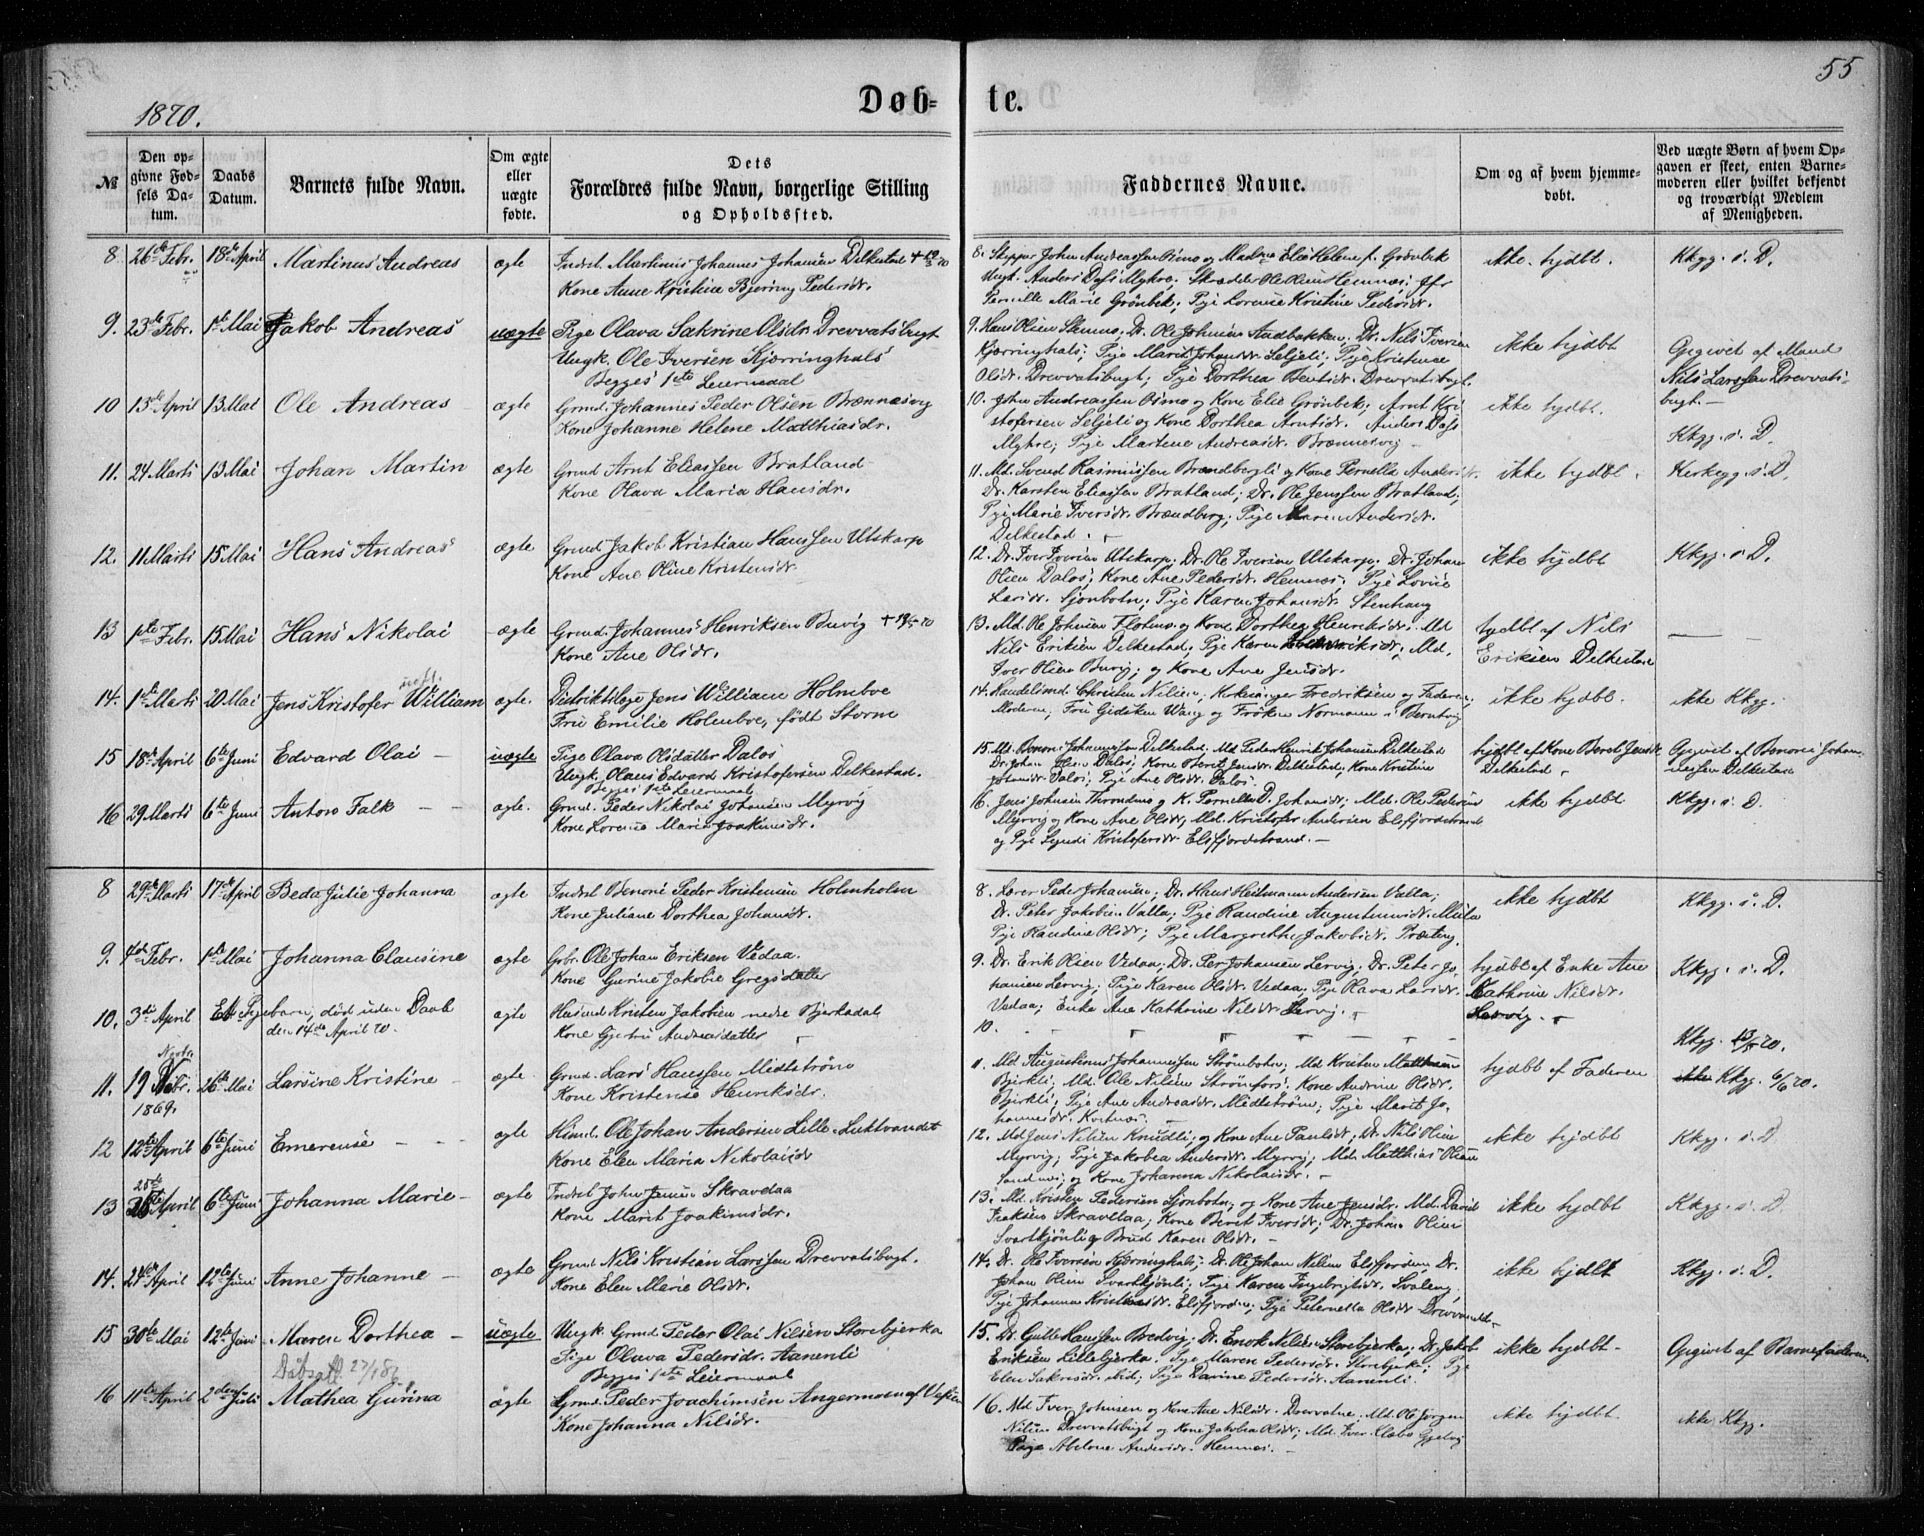 55
1870.
Døb-
te.
№
Den op-
givne Fød-
sels Da-
tum.
Daabs
Datum.
Barnets fulde Navn.
Om ægte
eller
uægte
fødte.
Dets
Forældres fulde Navn, borgerlige Stilling
og Opholdssted.
Faddernes Navne.
Om og af hvem hjemme-
døbt.
Ved uægte Børn af hvem Op-
gaven er skeet, enten Barne-
moderen eller hvilket bekjendt
og troværdigt Medlem
af Menigheden.
8. 26de Febr. 18de April Martinus Andreas ægte Indst. Martinus Johannes Johansen Delkestad
Kone Anne Kristine Bjøring Pedersdr.
8. Skipper John Andreassen Osmo og Madme Elie Helene f. Grønbek
Ungk. Anders Dass Mykre; Skrædder Ole Olsen Hemnæs; Jfr
Pernille Marie Grønbek; Pige Lorense Kristine Pedersdr.
ikke hjdbt.
Kkgg. i. D.
9. 23de Febr. 1ste Mai Jakob Andreas uægte Pige Olava Sakrine Olsdr. Drevvatsbugt
Ungk. Ole Iversen Kjerringhals
Begges 1ste Leiermaal
9. Hans Olsen Stemno; Dr. Ole Johnsen Andbakken. Dr. Nils Iversen
Kjærringhals; Pige Marit Johansdr. Seljeli; Pige Kristense
Olsdr. Drevvatsbugt; Pige Dorthea Bentsdr. Drevvatsbugt.
ikke hjdbt
Opgivet af Mand
Nils Larssen Drevvats-
bugt.
10 13de April 13 Mai Ole Andreas ægte Grmd. Johannes Peder Olsen Brænnesvig
Kone Johanne Helene Matthiasdr.
10. John Andreassen Osmo og Kone Elie Grønbek; Arnt Kri
stofersen Seljeli og Kone Dorthea Arntsdr. Anders Dass
Mykre; Pige Martene Andreasdr. Brænnesvig
ikke hjdbt.
Kkgg. i. D.
11. 24 Marts 13 Mai Johan Martin ægte Grmd Arnt Eliassen Bratland
Kone Olava Maria Hansdr.
11. Md. Svend Rasmussen Brændbergli og Kone Pernella Andersdr.
Dr. Karsten Eliassen Bratland; Dr. Ole Jenssen Bratland;
Pige Marie Iversdr. Brændberg; Pige Maren Andersdr.
Delkestad.
ikke hjdbt.
Kirkegg. i. D.
12. 11 Marts 15 Mai Hans Andreas ægte Grmd Jakob Kristian Hanssen Utskarp
Kone Ane Oline Kristensdr.
12. Dr. Iver Iversen Utskarp; Dr. Ole Iversen Utskarp. Dr. Johan
Olsen Dalos; Kone Ane Pedersdr. Hemnæs. Pige Lovise
Larsdr. Sjonbotn; Pige Karen Johansdr. Stenhaug
ikke hjdbt
Kkgg. i. D.
13 1ste Febr. 15 Mai Hans Nikolai ægte Grmd. Johannes Henriksen Buvig
Kone Ane Olsdr.
13. Md. Ole Johnsen Flostno og Kone Dorthea Henriksdr. Md
Nils Eriksen Delkestad; Pige Karen Henriksdr; Md.
Iver Olsen Buvig; og Kone Ane Jensdr.
hjdbt af Nils
Eriksen Delkestad
14. 1ste Marts 20 Mai Jens Kristofer William ægte. Distriktslæge Jens William Holmboe
Fru Emilie Holmboe, født Storm
14. Handelsmd. Christen Nilsen, Fredriksen og Faderen;
Moderen; Fru Gidsken Wang og Frøken Normann
ikke hjdbt.
ikke Kkgg.
15 18de April 6te Juni Edvard Olai uægte Pige Olava Olsdatter Dalos
Ungk. Olaus Edvard Kristofersen Delkestad.
Begges 1ste Leiermaal
15. Md. Benoni Johannessen Delkestad; Md. Peder Henrik Johansen Delkestad
Dr. Johan Olsen Dalos; Kone Berit Jensdr. Delkestad; Kone Kristine
Johansdr. Dalos; Pige Ane Olsdr. Dalos.
hjdbt af Kone Beret Jensdr
Delkestad
Opgivet af Benoni Johan-
nessen Delkestad
16 29 Marts 6te Juni Anton Falk ægte. Grmd. Peder Nikolai Johansen Myrvig
Kone Lorense Marie Joakimsdr.
6. Jens Johnsen Throndmo og K. Pernella D. Johansdr; Md. Ole Pedersen
Myrvig og Kone Ane Olsdr, Md. Kristofer Andersen Elsfjordstrand
og Pige Synnöi Kristofersdr. Elsfjordstrand.
ikke hjdbt
Kkgg. i. D.
8 29de Marts 17de April Beda Julie Johanna ægte Indst Benoni Peder Kristensen Holmholm
Kone Juliane Dorthea Johansdr.
8. Lærer Peder Johansen; Dr. Hans Heitmann Andersen Valla;
Dr. Peter Jakobsen Valla; Pige Randine Augustinusdr.
Pige Randine Olsdr; Pige Margrethe Jakobsdr.
ikke hjdbt
Kkgg. i. D.
9. 4de Febr. 1ste Mai Johanna Clausine ægte Grbr. Ole Johan Eriksen Vedaa.
Kone Gurine Jakobie Gregsdatter
9. Dr. Erik Olsen Vedaa; Dr. Per Johansen Lervig; Dr. Peter Jo-
hansen Lervig; Pige Karen Olsdr. Vedaa; Pige Olava Larsdr.
Vedaa; Enke Ane Kathrine Nilsdr. Lervig.
hjdbt af Enke Ane
Kathrine Nilsdr.
Lervig.
Kkgg. i. D.
10. 3de April Et Pigebarn, død uden Daab
den 14de April 70. ægte Husmd Kristen Jakobsen nedre Bjerkadal
Kone Gjertru Andreasdatter
10.
Kkgg. 13/5 70.
11. 19 Novbr. 1869. 26te Mai Larsine Kristine ægte Grmd. Lars Hanssen Midtstrøm
Kone Kristense Henriksdr.
11. Md. Augustinus Johannessen Strømbotn; Md Kristen
Bjerkli; Md. Ole Nilsen Strømfors. Kone Andrine Olsdr.
Bjerkli; Pige Ane Andreasdr. Midtstrøm; Pige Marit Jo-
hannesdr.
hjdbt af Faderen
ikke Kkgg. 6/6 70.
12 12te April 6te Juni Emerense ægte Husmd. Ole Johan Andersen Lille-Luktvandet
Kone Elen Maria Nikolaisdr
12. Md Jens Nilsen Knudli; og Kone Ane Paulsdr; Dr. Nils Olsen
Myrvig; Pige Jakobea Andersdr. Myrvig; Md. Matthias Olsen
Sandnes; og Kone Johanna Nikolaisdr.
ikke hjdbt
Kkgg. i. D.
13 25te April 6te Juni Johanna Marie ægte Indst John Jensen Skravdaa
Kone Marit Joakimsdr.
13. Md. Kristen Pedersen Sjonbotn; og Kone Ane Jensdr. Md. David
Isaksen Skravdaa; Kone Beret Iversdr; Dr. Johan Olsen
Svartkjønli og Brud Karen Olsdr.
ikke hjdbt
Kkgg. i. D.
14. 24de April 12te Juni Anne Johanne ægte Grmd Nils Kristian Larssen Drevvatsbugt.
Kone Elen Marie Olsdr.
14. Dr. Ole Iversen Kjerringhals; Dr. Ole Johan Nilsen Elsfjorden, Dr.
Johan Olsen Svartkjønli; Pige Karen Ingebrigtsdr. Svaleng;
Pige Johanna Kristensdr. Elsfjorden; Pige Peternella Olsdr Drevvandet
ikke hjdbt
Kkgg. i. D.
15 30te Mai 12te Juni Maren Dorthea uægte Ungk. Grmd. Peder Olai Nilsen Storebjerka
Pige Olava Pedersdr. Aanenli
Begges 1ste Leiermaal
15. Dr. Gulle Hanssen Bredvig; Dr. Enok Nilsen Storebjerka; Dr. Jakob
Eriksen Lillebjerka. Pige Maren Pedersdr. Storebjerka; Pige
Elen Sakrisdr. ibid; Pige Davine Pedersdr. Aanenli.
ikke hjdbt
Opgivet af Barnefaderen
Dåbsatt. 27/1 86
16 11te April 2den Juli Mathea Gurina ægte Grmd. Peder Joachimsen Angermoen af Vefsen
Kone Johanna Nilsdr.
16. Md Iver Johnsen og Kone Ane Nilsdr. Drevvatne; Md. Ole Jørgen
Nilsen Drevvatsbugt og Kone Jakobea Olsdr; Md. Iver Klæbo
Pige Abelone Andersdr. Hemnæs.
ikke hjdbt.
ikke Kkgg.